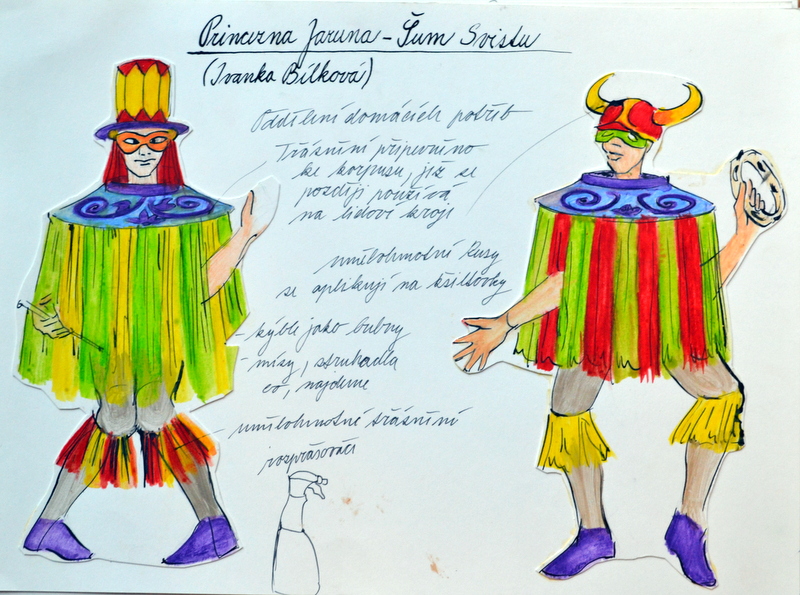 Princezna Jaruna – Šum Svistu
(Ivanka Bílková)
Oddělení domácích potřeb
Třásnění připevněno
ke korpusu, jíž se
později používá
na lidové kroji
umělohmotné kusy
se aplikují na kšiltovky
- kýble jako bubny
- mísy, struhadla
co, najdeme
umělohmotné třásnění
rozprašovači